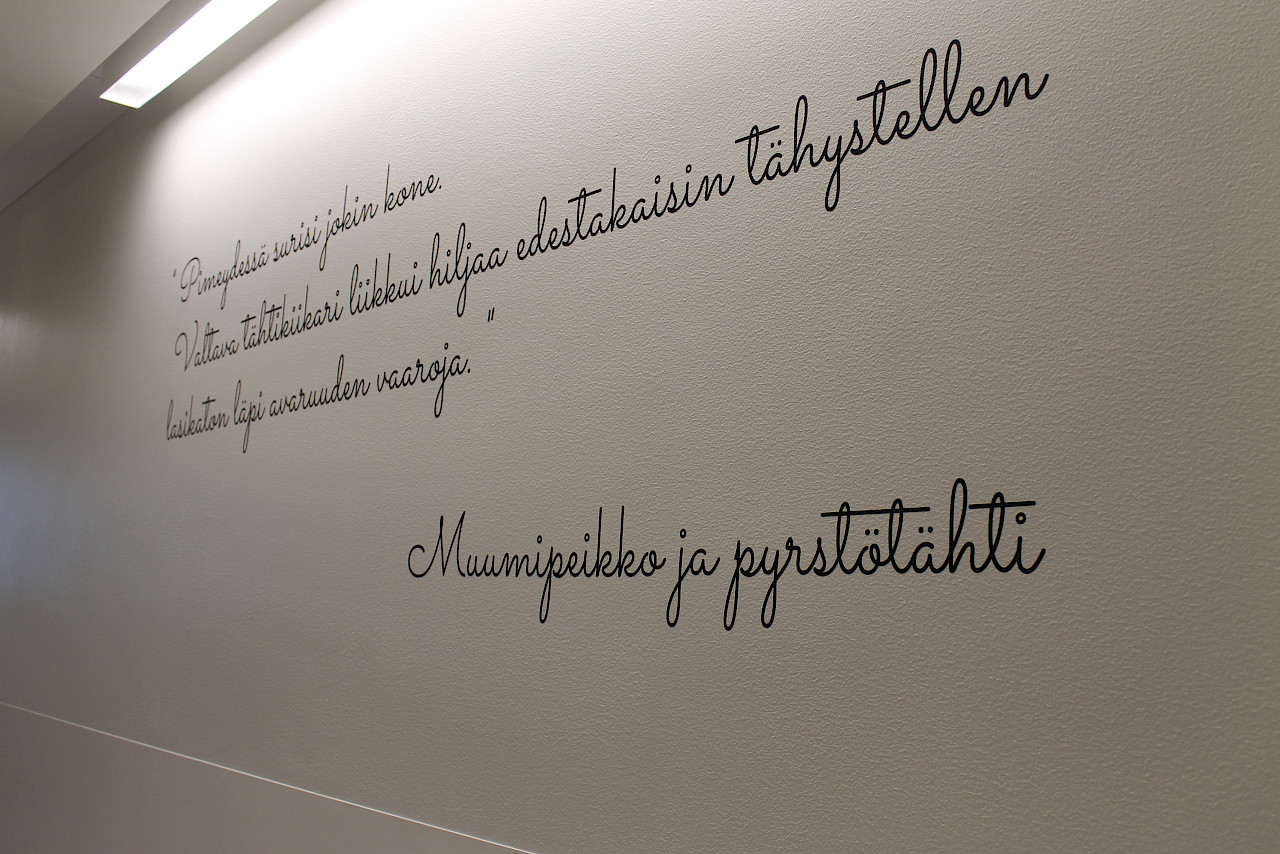 "Pimeydessä surisi jokin kone.
Valtava tähtikiikari liikkui hiljaa edestakaisin tähystellen
lasikaton läpi avaruuden vaaroja."
Muumipeikko ja pyrstötähti